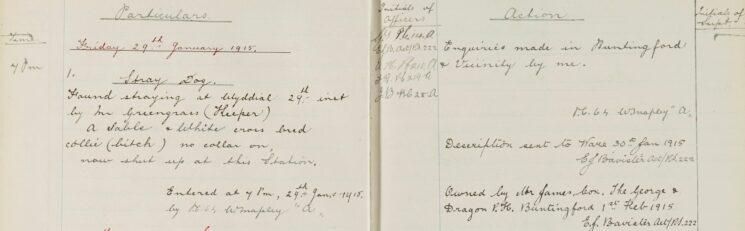 Particulars
Time
Friday 29th January 1915.
7 Pm
1.
Stray Dog.
Found straying at Wyddial 29th inst
by Mr Greengrass (Keeper)
A Sable & White cross bred
collie (bitch) no collar on,
now shut up at this Station.
Entered at 7 Pm, 29th Jan. 1915.
by P.C. 64 Wmapley "A.
Initials of
Officers
Action
Initials of
Supt.
Enquiries made in Buntingford
& Vicinity by me.
P.C. 64 Wmapley "A.
Description sent to Ware 30th Jan 1915
E.J. Bavister Act/P.S. 222
Owned by Mr James Cox, The George &
Dragon P.H. Buntingford 1st Feb 1915
E.J. Bavister Act/P.S. 222